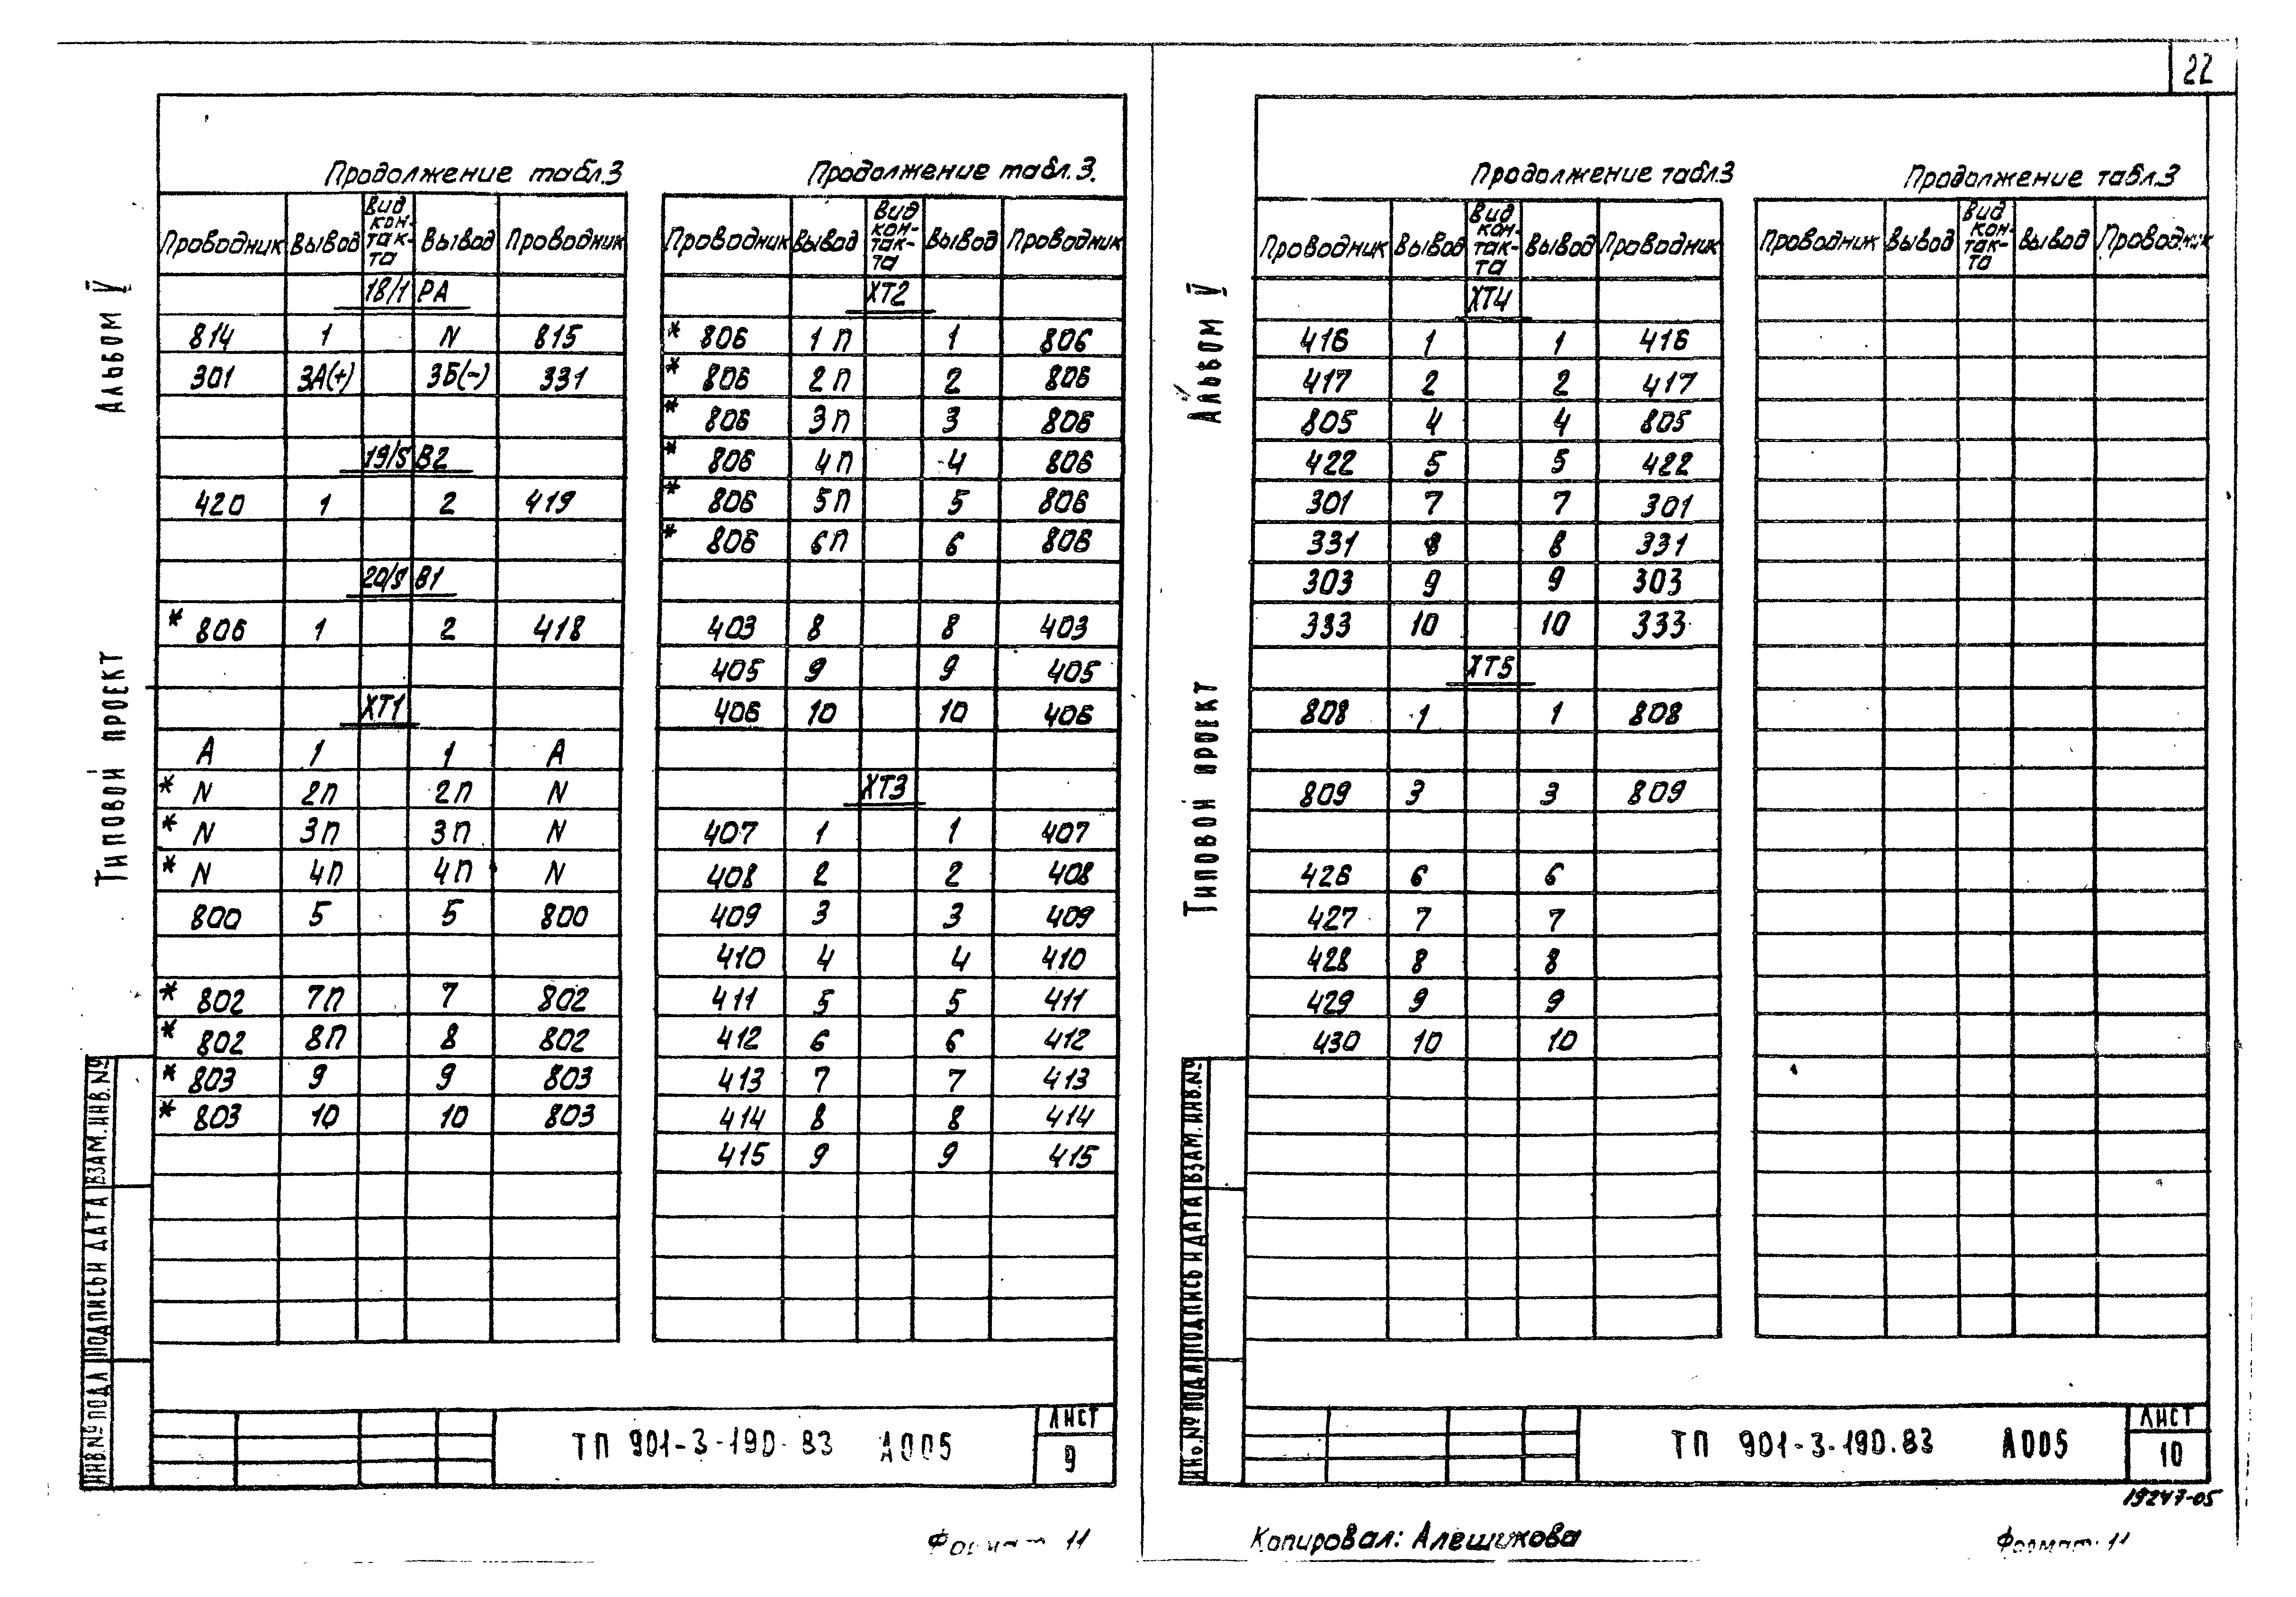 22
Продолжение табл.3
Проводник Вывод Вид кон-так-та Вывод Проводник
18/1 РА
814 1 N 815
301 3А(+) 3Б(-) 331
19/S В2
420 1 2 419
20/S В1
* 806 1 2 418
XT1
А 1 1 А
* N 2П 2П N
* N 3П 3П N
* N 4П 4П N
800 5 5 800
* 802 7П 7 802
* 802 8П 8 802
* 803 9 9 803
* 803 10 10 803
Продолжение табл.3.
Проводник Вывод Вид кон-так-та Вывод Проводник
XT2
* 806 1П 1 806
* 806 2П 2 806
* 806 3П 3 806
* 806 4П 4 806
* 806 5П 5 806
* 806 6П 6 806
403 8 8 403
405 9 9 405
406 10 10 406
XT3
407 1 1 407
408 2 2 408
409 3 3 409
410 4 4 410
411 5 5 411
412 6 6 412
413 7 7 413
414 8 8 414
415 9 9 415
Альбом V
Типовой проект
ИНВ.№ ПОДЛ ПОДПИСЬ И ДАТА ВЗАМ.ИНВ.№
ТП 901-3-190.83 А005
ЛИСТ
9
Формат 11
Продолжение табл.3
Проводник Вывод Вид кон-так-та Вывод Проводник
XT4
416 1 1 416
417 2 2 417
805 4 4 805
422 5 5 422
301 7 7 301
331 8 8 331
303 9 9 303
333 10 10 333
XT5
808 1 1 808
809 3 3 809
426 6 6
427 7 7
428 8 8
429 9 9
430 10 10
Продолжение табл.3
Проводник Вывод Вид кон-так-та Вывод Проводник
Альбом V
Типовой проект
ИНВ.№ ПОДЛ ПОДПИСЬ И ДАТА ВЗАМ.ИНВ.№
ТП 901-3-190.83 А005
ЛИСТ
10
19247-05
Копировал: Алешикова
Формат 11